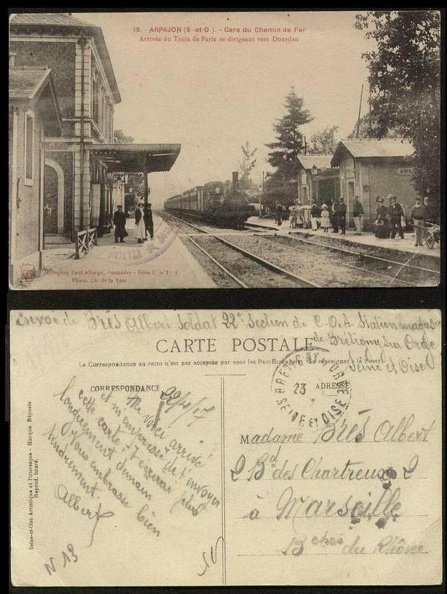 19. - ARPAJON (S-et-O.) - Gare du Chemin de Fer
Arrivée du Train de Paris se dirigeant vers Dourdan
Collection Paul Allorge, Série C. A. T. V
Photo. Ch. de la Vève
Envoi de Brès Albert Soldat 22e Section de C.O.A Station
de Brétigny sur Orge
Seine et Oise
CARTE POSTALE
La Correspondance au recto n'est pas acceptée par tous les Pays Étrangers. (Se renseigner à la Poste).
CORRESPONDANCE
ADRESSE
BRETIGNY-SUR-ORGE
23
SEINE ET OISE
22/10/07
arrivé
et m'empresse de t'envoyer
cette carte, t'écrirai plus
longuement demain
embrasse bien
tendrement
Albert
N 19
Madame Brès Albert
2 Bd des Chartreux 2
à Marseille
Bches du Rhône
Seine-et-Oise Artistique et Pittoresque - Marque Déposée
Reprod. Interd.